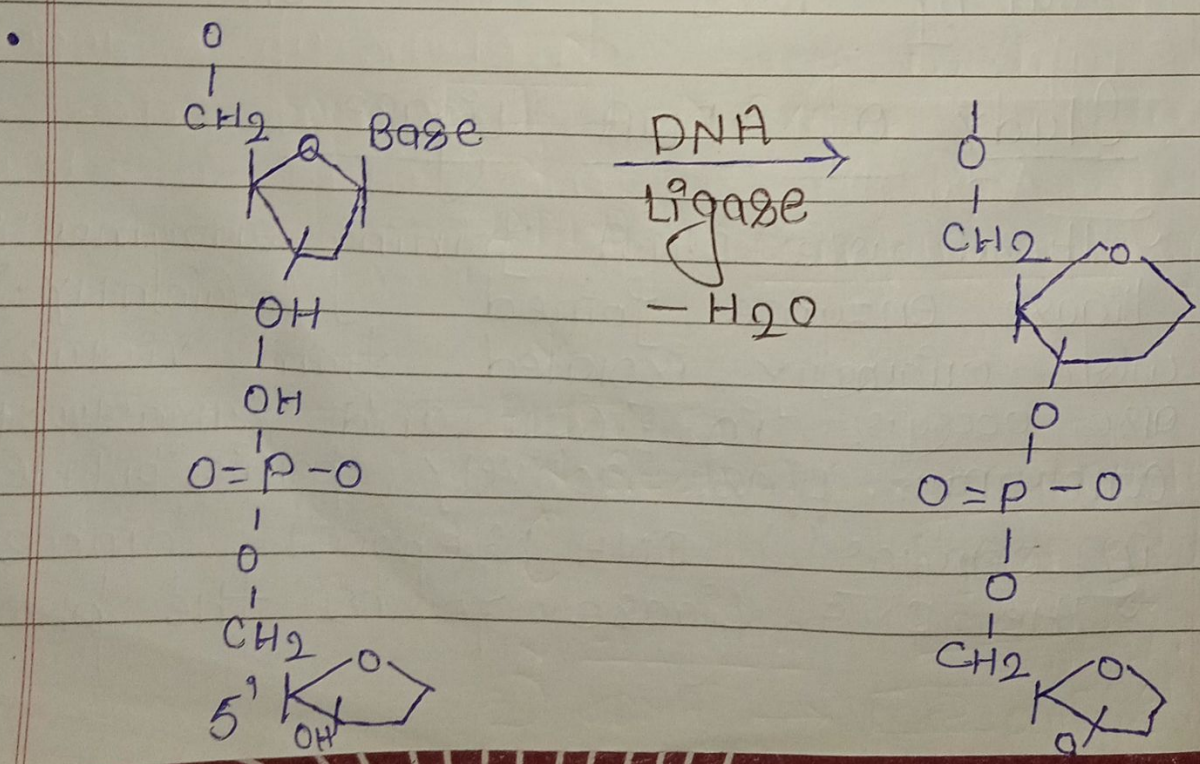 O
CH2
O Base
OH
OH
O=P-O
O
CH2
O
5'
OH
DNA
Ligase
- H2O
O
CH2
O
O
O=P-O
O
CH2
O
O